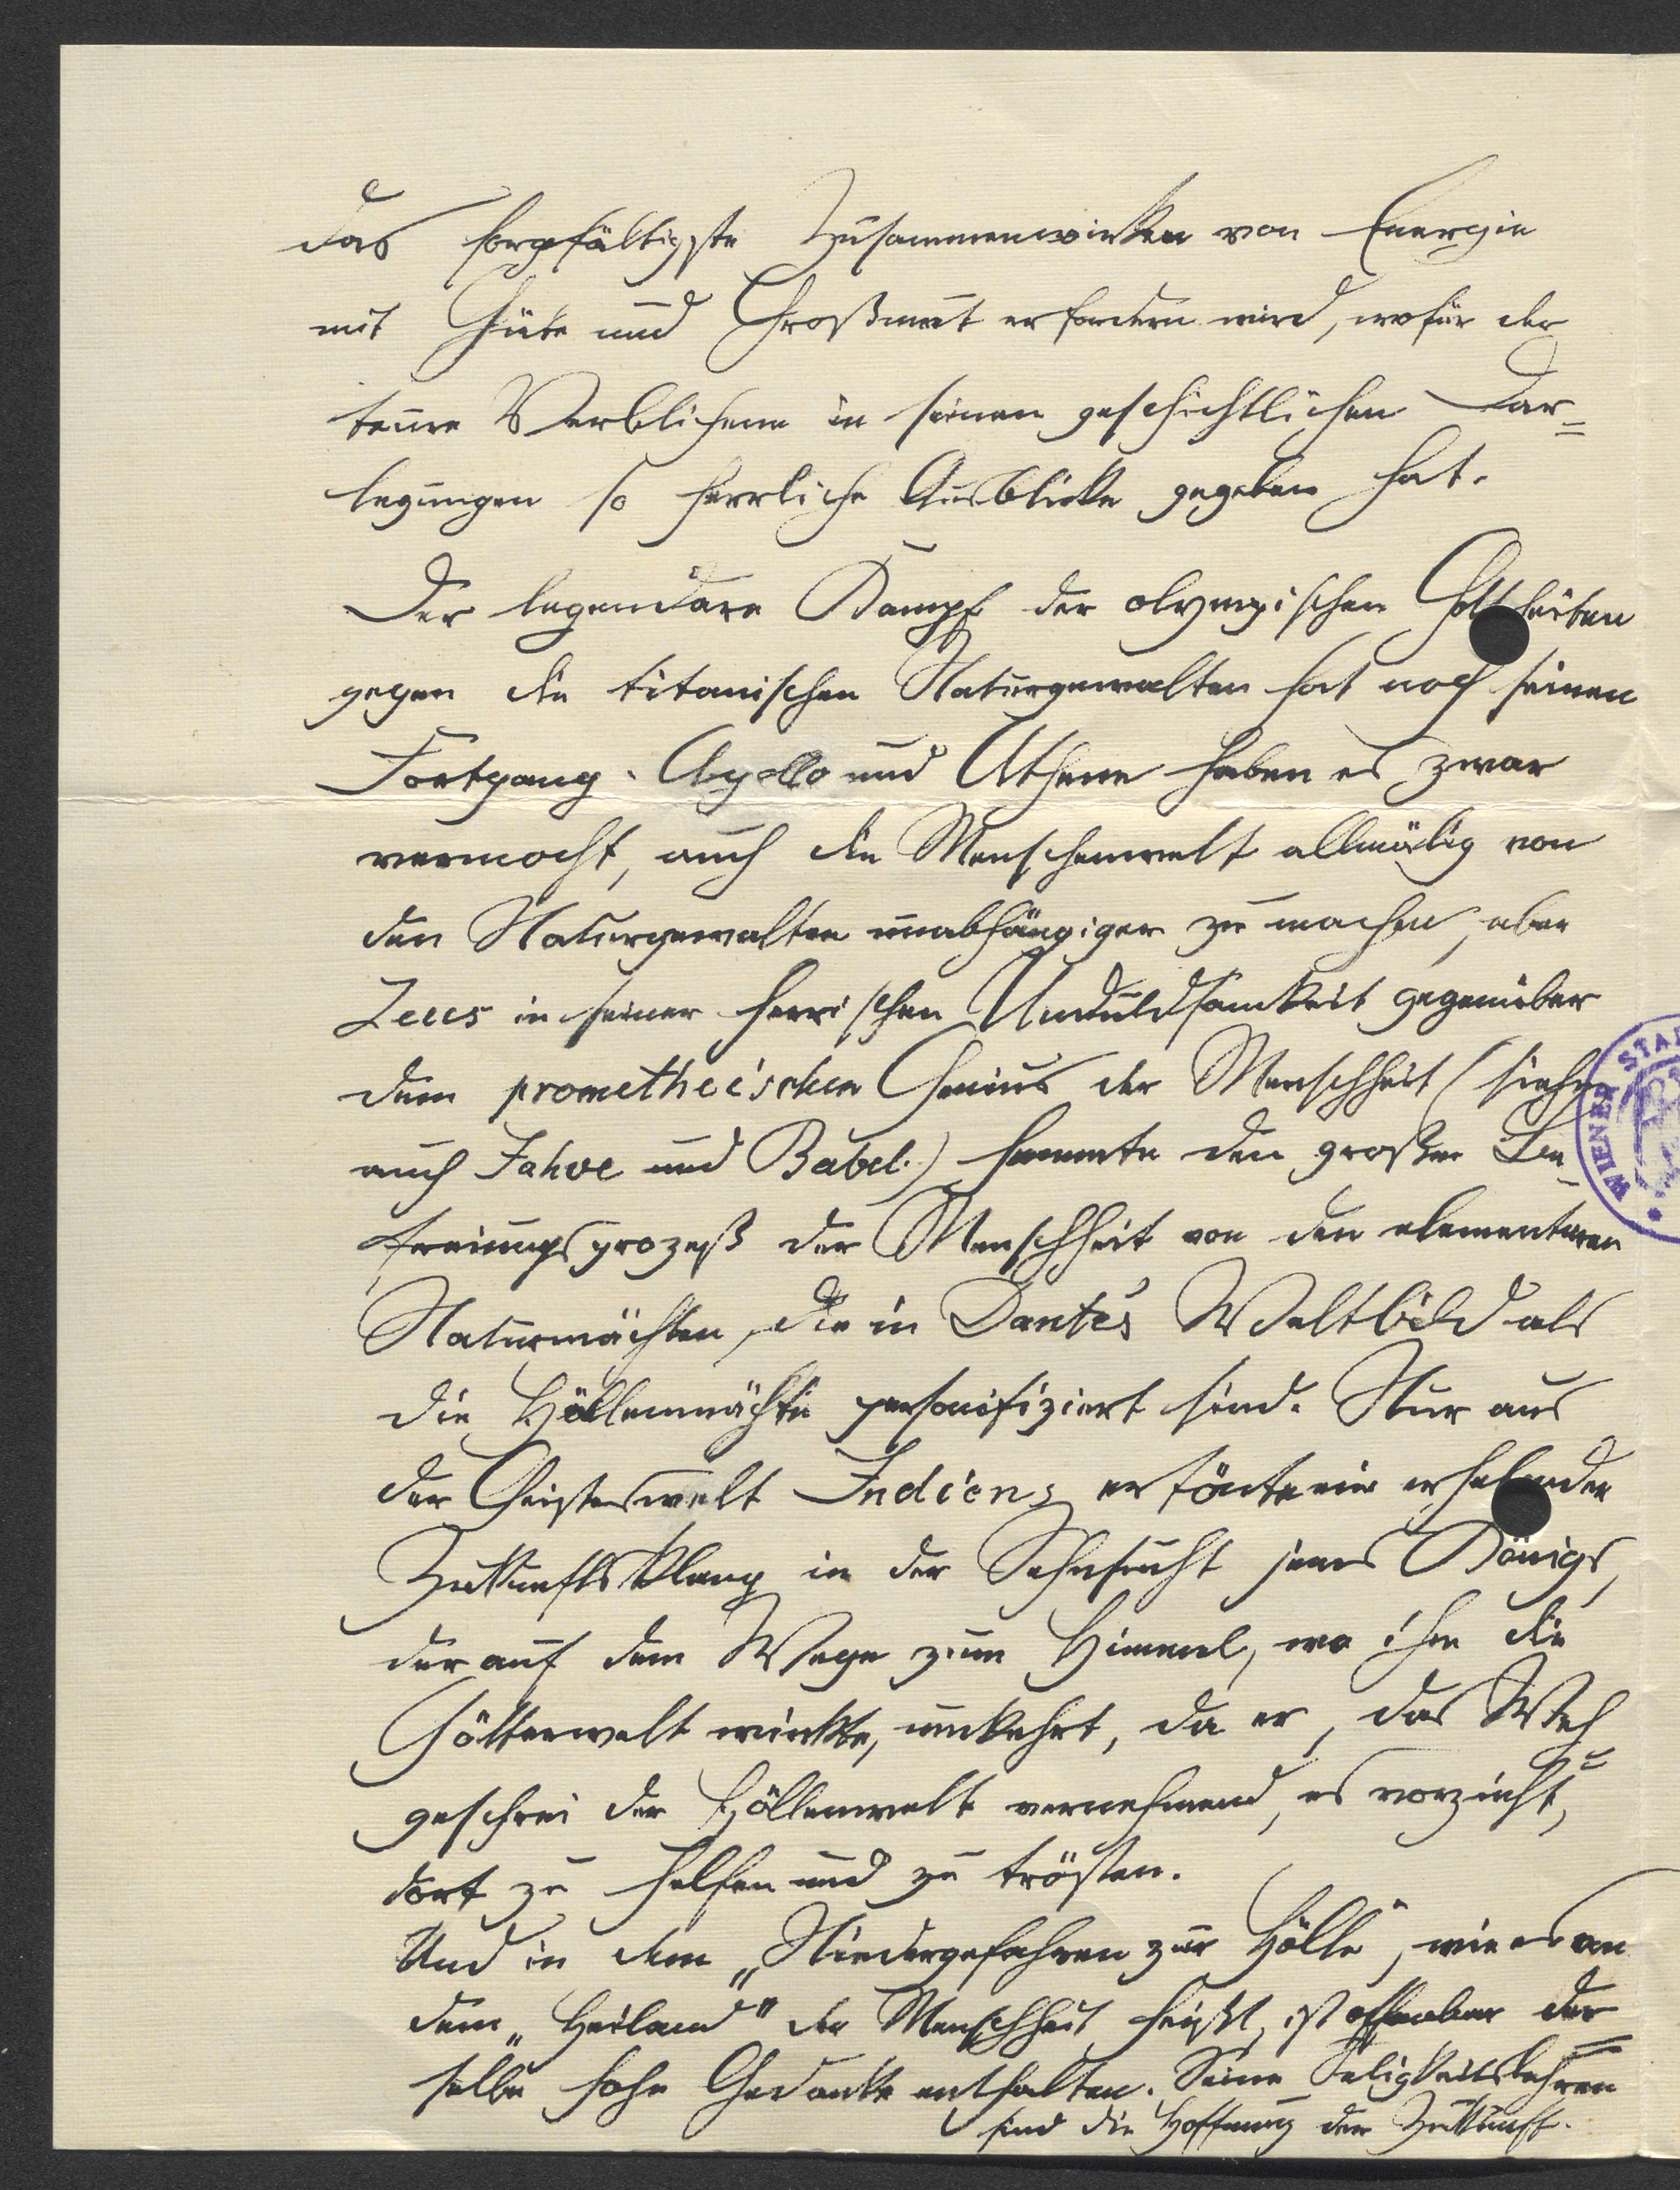 das sorgfältigste Zusammenwirken von Energie
mit Güte und Großmut erfordern wird, wofür der
teure Verblichene in seinen geschichtlichen Dar=
legungen so herrliche Ausblicke gegeben hat.
Der legendäre Kampf der olympischen Gottheiten
gegen die titanischen Naturgewalten hat noch seinen
Fortgang. Apollo und Athene haben es zwar
vermocht, auch die Menschenwelt allmälig von
den Naturgewalten unabhängiger zu machen, aber
Zeus in seiner herrischen Unduldsamkeit gegenüber
dem prometheischen Genius der Menschheit (siehe
auch Jahve und Babel.) hemmte den großen Be-
freiungsprozeß der Menschheit von den elementaren
Naturmächten, die in Dante's Weltbild als
die Höllenmächte personifiziert sind. Nur aus
der Geisteswelt Indiens ertönte ein erhebender
Zukunftsklang in der Sehnsucht jenes Königs,
der auf dem Wege zum Himmel, wo ihm die
Götterwelt winkte, umkehrt, da er, das Weh=
geschrei der Höllenwelt vernehmend, es vorzieht,
dort zu helfen und zu trösten.
Und in dem „Niedergefahren zur Hölle", wie es von
dem „Heiland" der Menschheit heißt, ist offenbar der=
selbe hohe Gedanke enthalten. Seine Seligkeitslehren
sind die Hoffnung der Zukunft.
WIENER STA